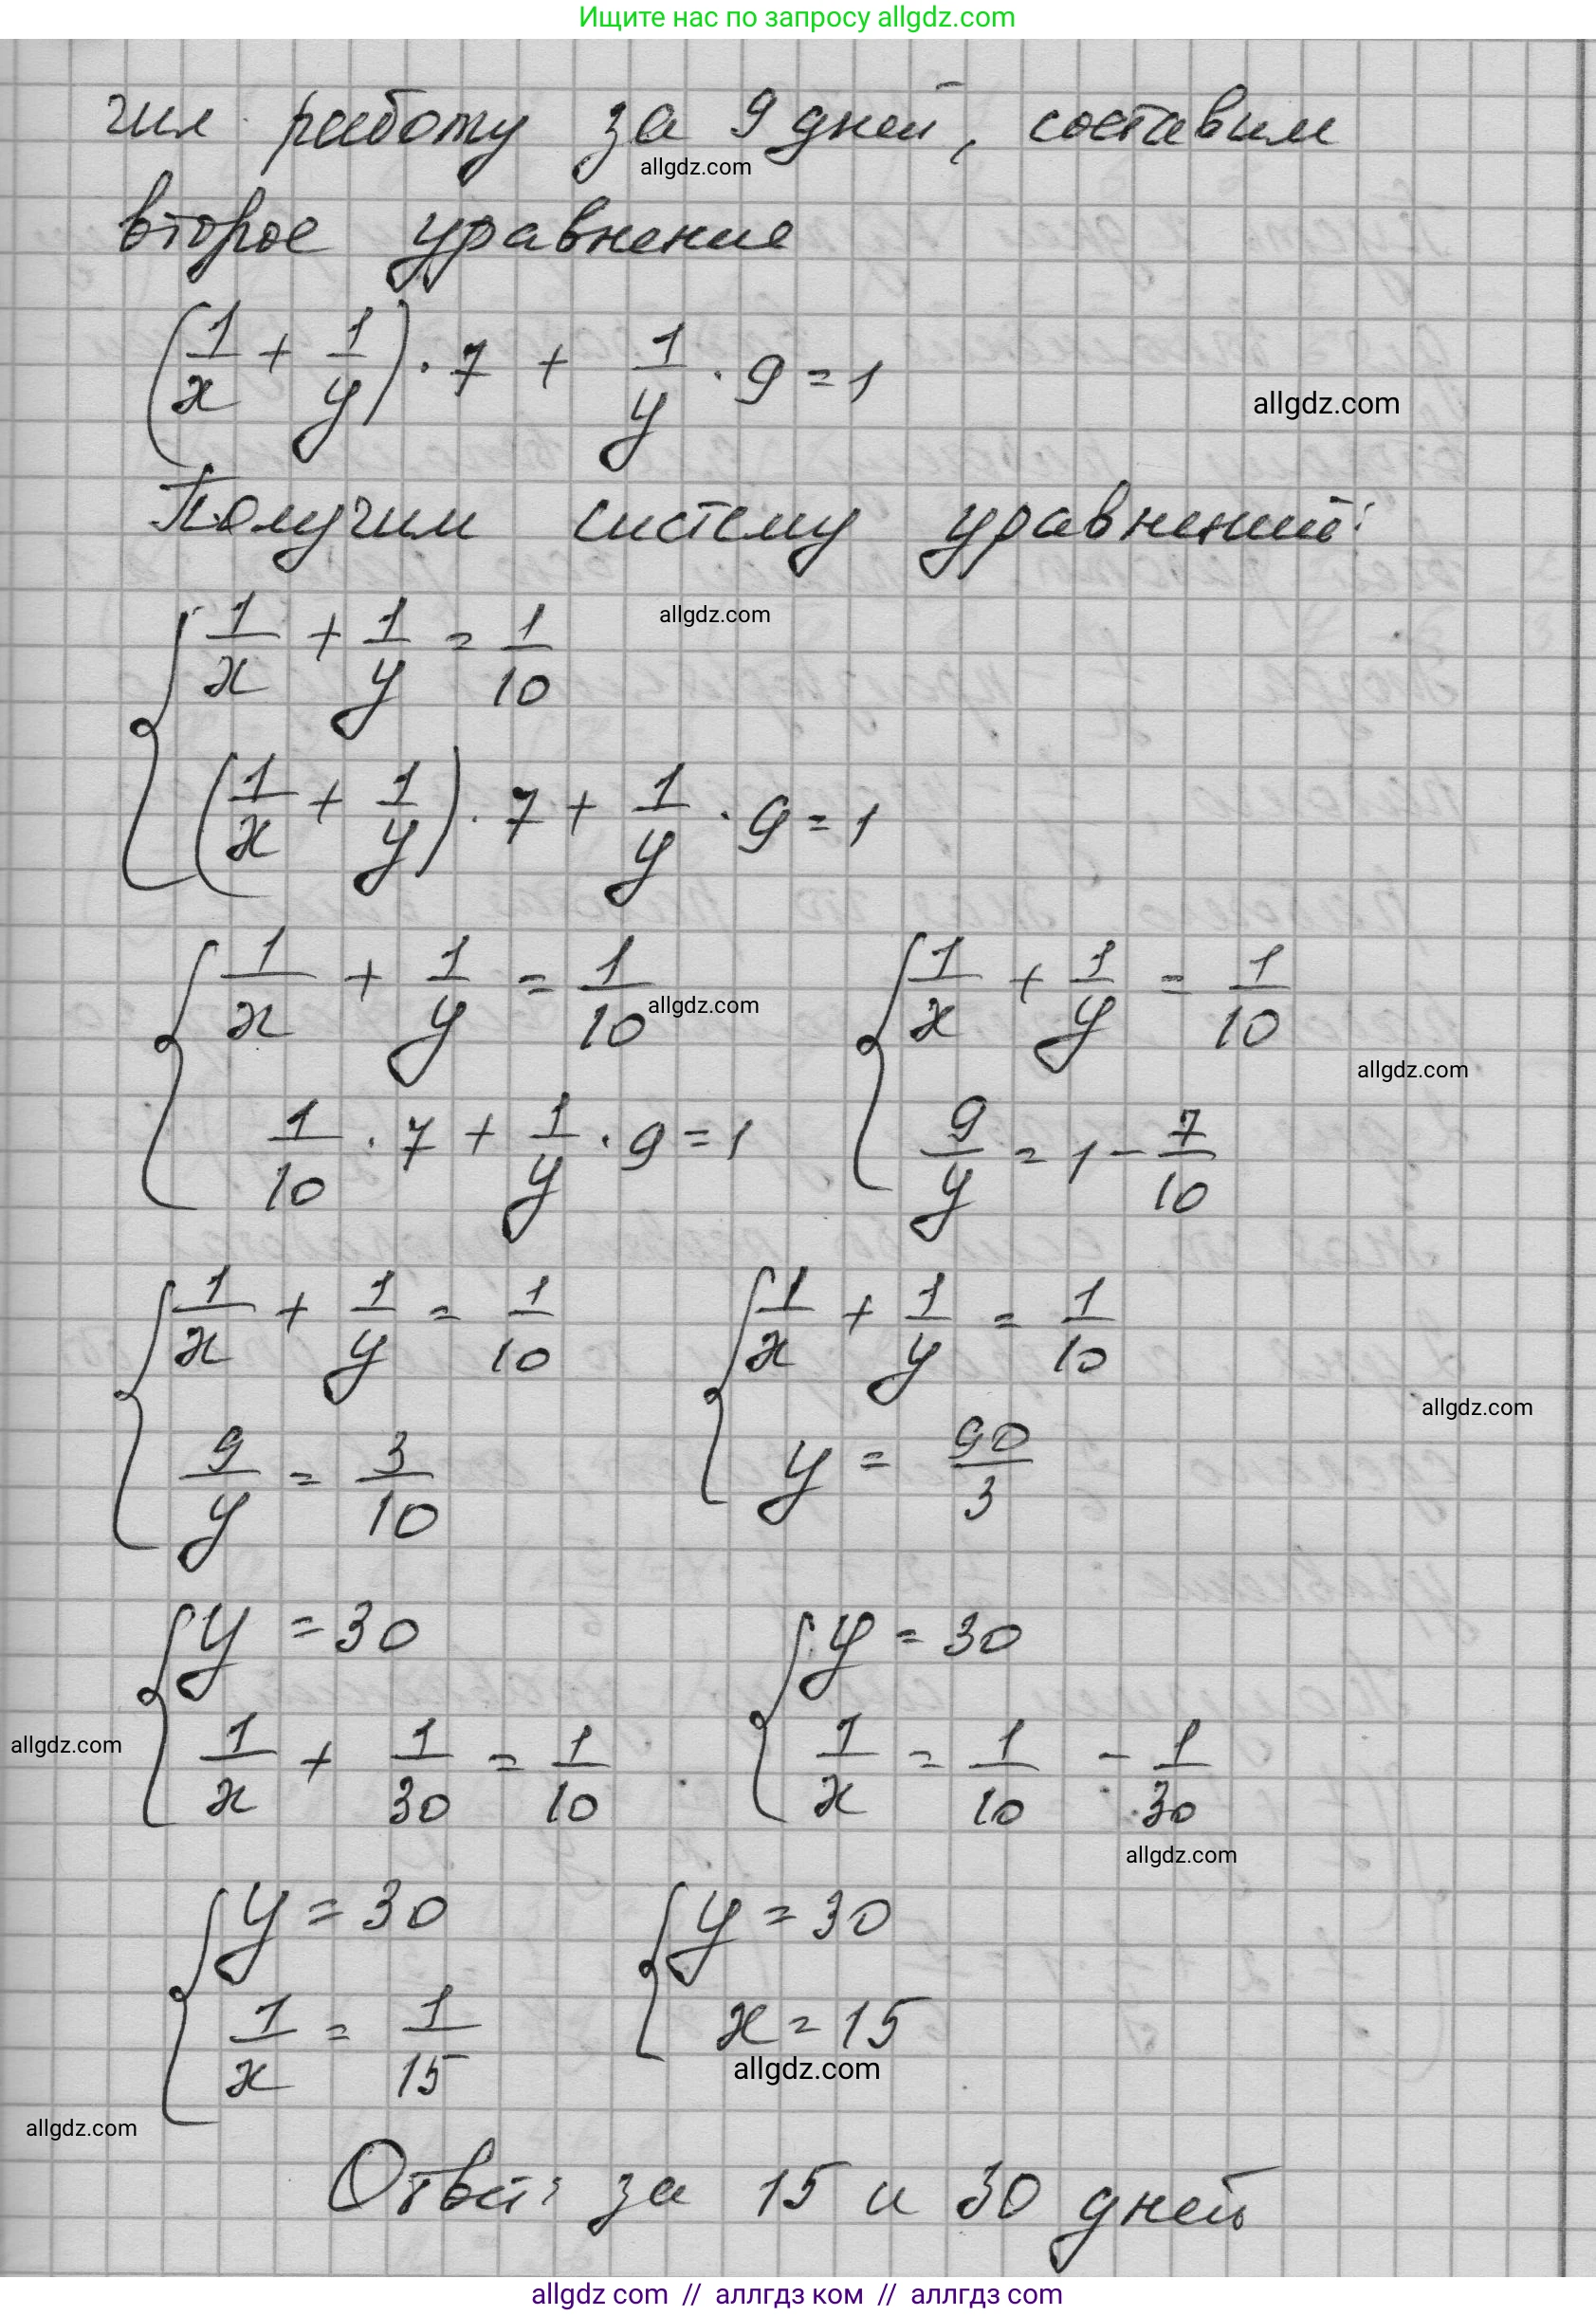 Ищите нас по запросу allgdz.com
чил работу за 9 дней, составим
allgdz.com
второе уравнение
(1/x + 1/y) · 7 + 1/y · 9 = 1
allgdz.com
Получим систему уравнений:
allgdz.com
{ 1/x + 1/y = 1/10
(1/x + 1/y) · 7 + 1/y · 9 = 1
{ 1/x + 1/y = 1/10 allgdz.com { 1/x + 1/y = 1/10
allgdz.com
1/10 · 7 + 1/y · 9 = 1 9/y = 1 - 7/10
{ 1/x + 1/y = 1/10 { 1/x + 1/y = 1/10
allgdz.com
9/y = 3/10 y = 90/3
{ y = 30 { y = 30
allgdz.com 1/x + 1/30 = 1/10 1/x = 1/10 - 1/30
allgdz.com
{ y = 30 { y = 30
1/x = 1/15 x = 15
allgdz.com
allgdz.com
Ответ: за 15 и 30 дней
allgdz com // аллгдз ком // аллгдз com